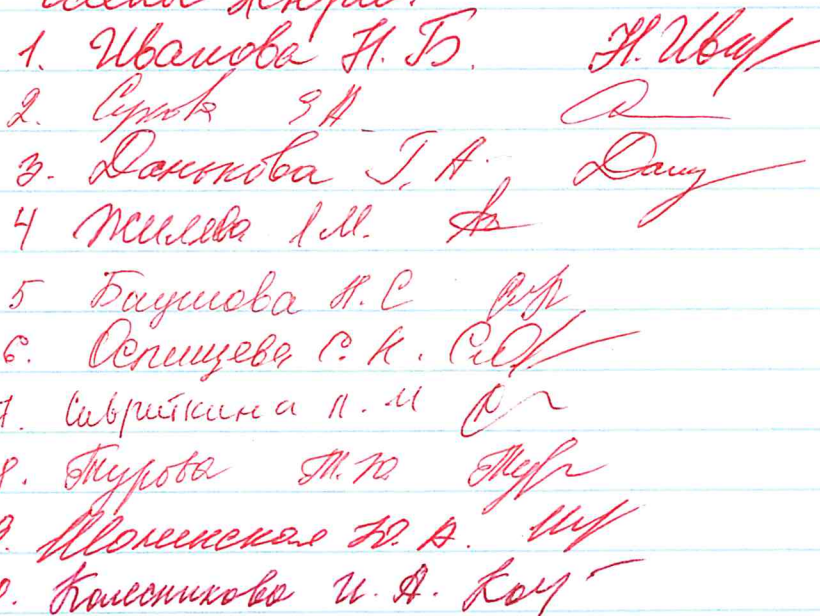 члены жюри:
1. Иванова Н. Б. Н. Ива
2. Сухова Э А
3. Данькова Г. А. Дань
4 Жилева М.
5 Баушова Н. С
6. Оспищева С. Н.
7. Сивриткина Л. М
8. Турова Т. Ю. Тур
9. Шоленская Ю. А.
0. Колесникова И. А. Кол